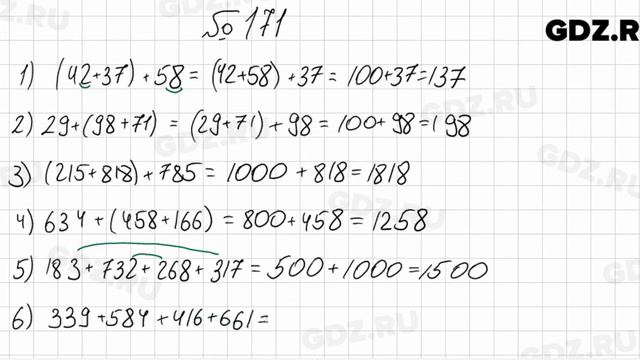 № 171
GDZ.R
1) (42+37)+58 = (42+58)+37 = 100+37=137
2) 29+(98+71) = (29+71)+98=100+98=198
3) (215+818)+785= 1000 +818=1818
4) 634+(458+166) = 800+458 = 1258
5) 183+732+268+317=500+1000=1500
6) 339+584+416+661=
GDZ.RU
GDZ.RU
GDZ.RU
GDZ.RU
GDZ.RU
GDZ.RU